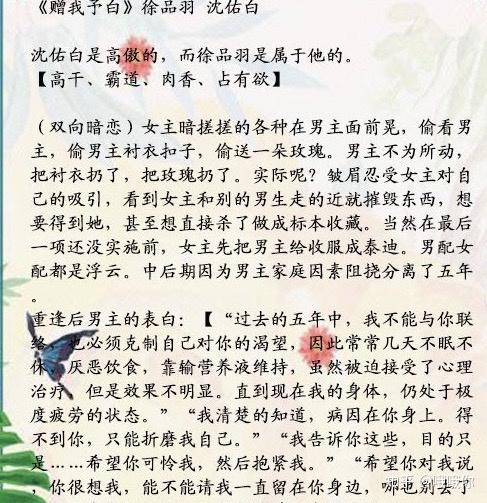 《赠我予白》徐品羽 沈佑白
沈佑白是高傲的，而徐品羽是属于他的。
【高干、霸道、肉香、占有欲】
（双向暗恋）女主暗搓搓的各种在男主面前晃，偷看男
主，偷男主衬衣扣子，偷送一朵玫瑰。男主不为所动，
把衬衣扔了，把玫瑰扔了。实际呢？皱眉忍受女主对自
己的吸引，看到女主和别的男生走的近就摧毁东西，想
要得到她，甚至想直接杀了做成标本收藏。当然在最后
一项还没实施前，女主先把男主给收服成泰迪。男配女
配都是浮云。中后期因为男主家庭因素阻挠分离了五年
。
重逢后男主的表白：【“过去的五年中，我不能与你联
络，也必须克制自己对你的渴望，因此常常几天不眠不
休、厌恶饮食，靠输营养液维持，虽然被迫接受了心理
治疗，但是效果不明显。直到现在我的身体，仍处于极
度疲劳的状态。”“我清楚的知道，病因在你身上。得
不到你，只能折磨我自己。”“我告诉你这些，目的只
是……希望你可怜我，然后抱紧我。”“希望你对我说
，你很想我，能不能请我一直留在你身边，哪也别去了
知乎